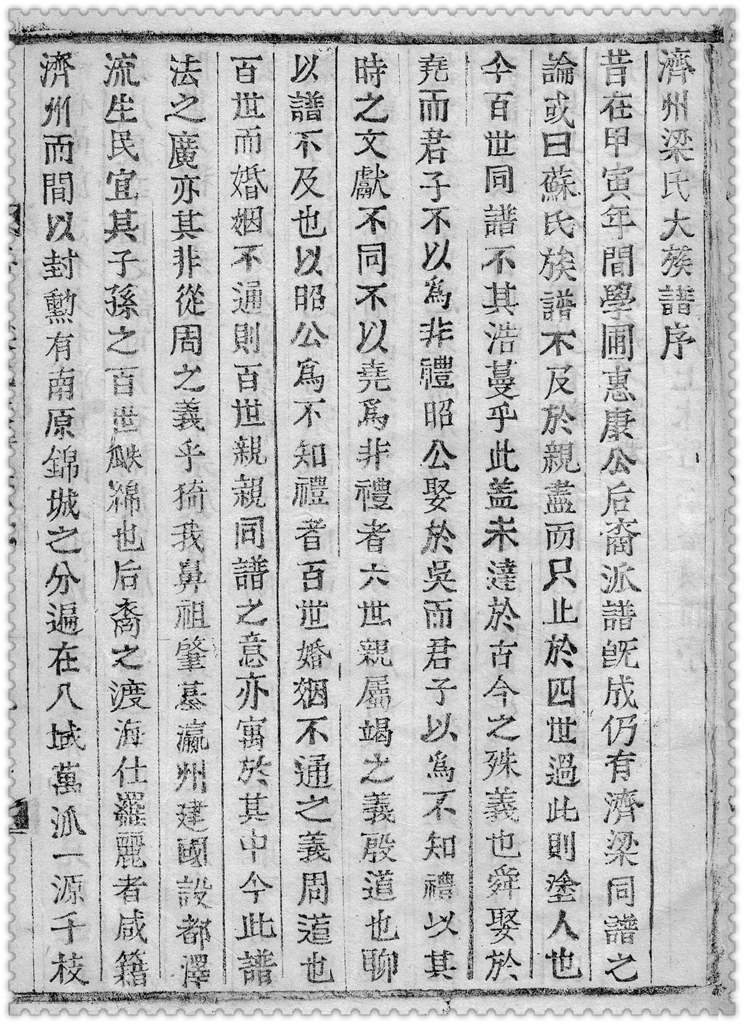 濟州梁氏大族譜序
昔在甲寅年間學圃惠康公后裔派譜旣成仍有濟梁同譜之
論或曰蘇氏族譜不及於親盡而只止於四世過此則塗人也
今百世同譜不其浩蔓乎此盖未達於古今之殊義也舜娶於
堯而君子不以爲非禮昭公娶於吳而君子以爲不知禮以其
時之文獻不同不以堯爲非禮者六世親屬竭之義殷道也聊
以譜不及也以昭公爲不知禮者百世婚姻不通之義周道也
百世而婚姻不通則百世親親同譜之意亦寓於其中今此譜
法之廣亦其非從周之義乎猗我鼻祖肇基瀛州建國設都澤
流生民宜其子孫之百世瓞綿也后裔之渡海仕羅麗者咸籍
濟州而間以封勳有南原錦城之分遍在八域萬派一源千枝